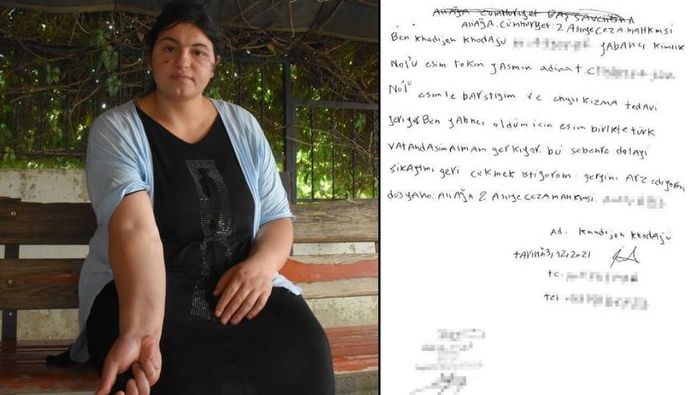 ALİAĞA CUMHURİYET BAŞ SAVCILIĞINA
ALİAĞA. CÜMHÜRİYET. 2 ASLIYE CEZA MAHKMSİ
Ben Khadijeh Khodaju yabancı Kimlik
No'lu eşim Tekin yasmin adina t.c
No'lu esimle barstigim ve
Ben yabncı oldüm icin esim birlikte türk
VATANDASIM ALMAM gerkiyor. bu sebenre dolayi
Sikaytmi geri cekmek istiyorom. gergini Arz ediyorom
dosyano: AliAğA 2 Asliye ceza mahkmsi.
Ad. Khadijeh Khodaju
tarih 3,12,2021
TC.
Tel